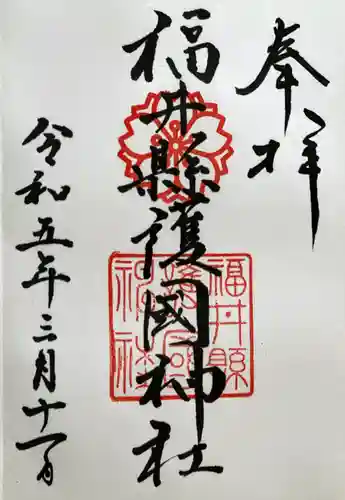 奉拝
福井縣護國神社
令和五年三月十一日
福井縣
護國
神社